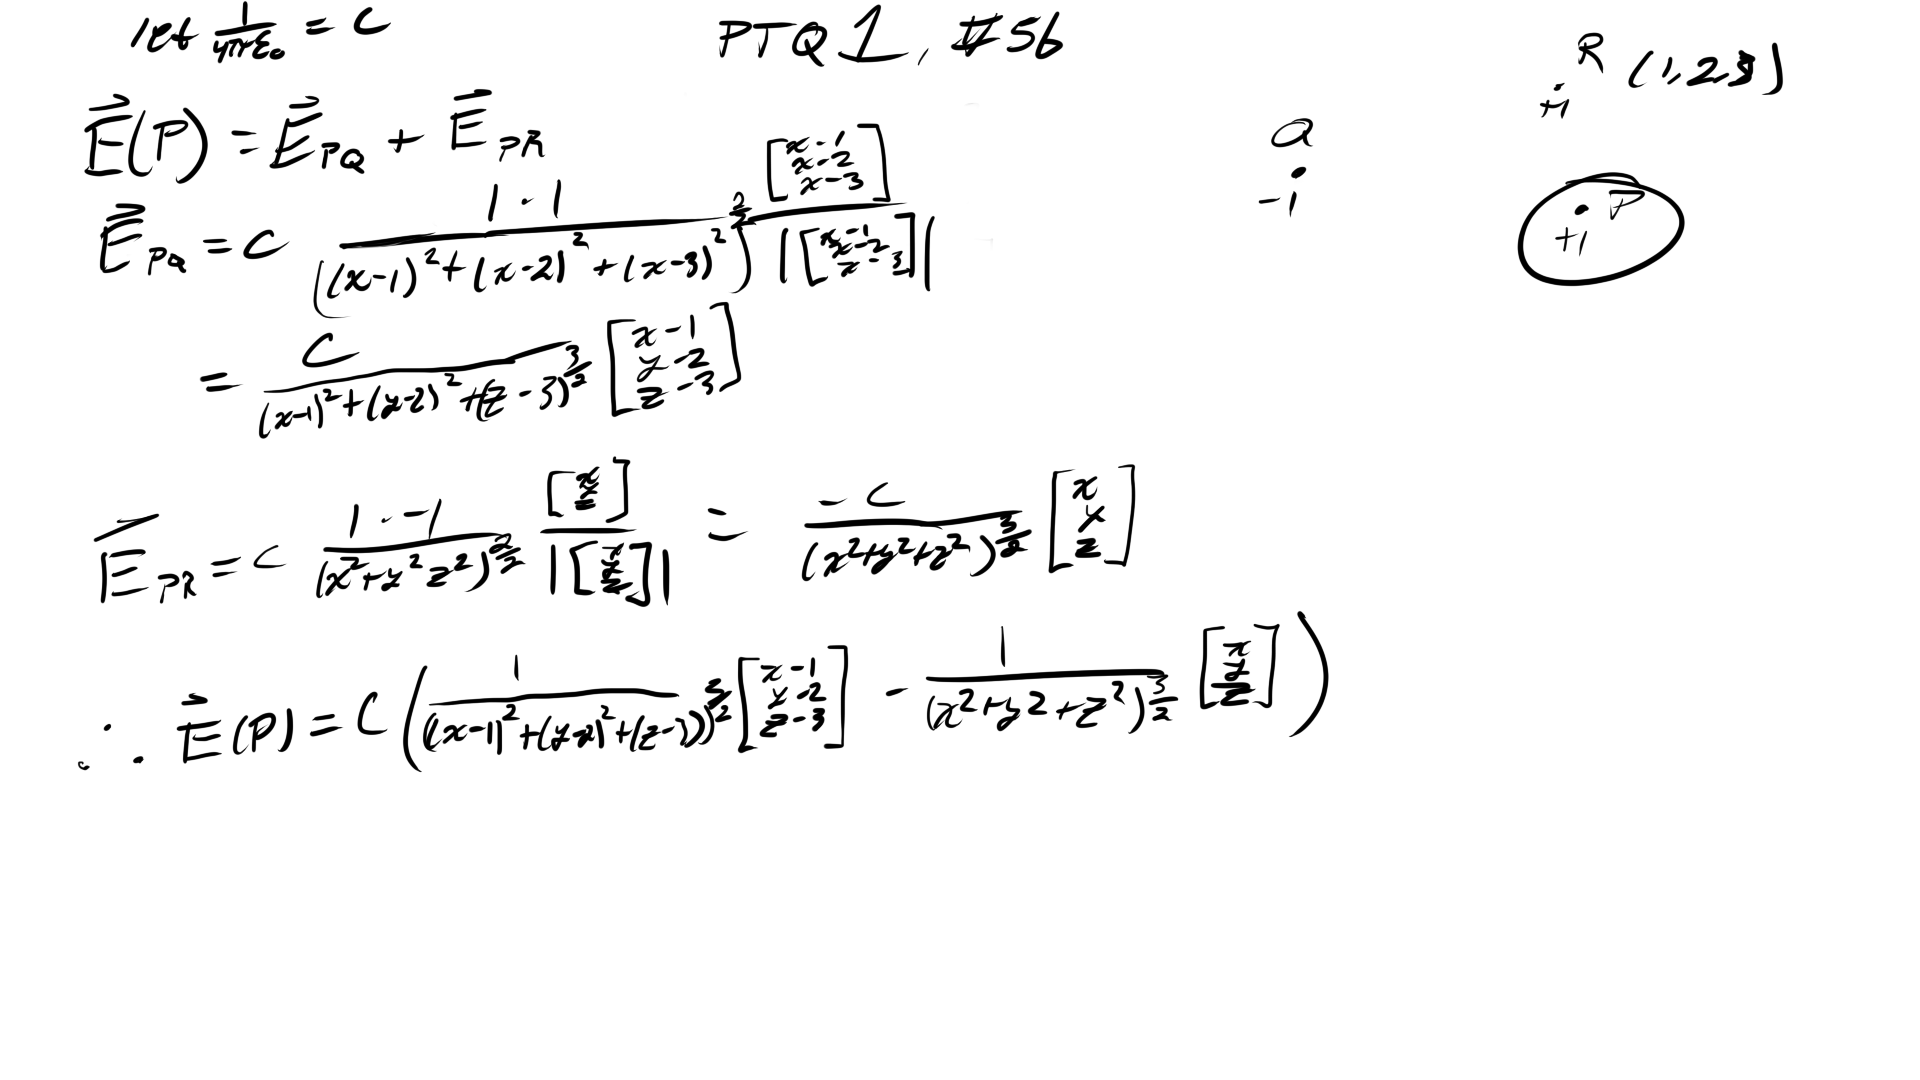 let 1/(4πε₀) = C
PTQ 1, #56
R (1,2,3)
+1
Q
-1
P
+1
E⃗(P) = E⃗_PQ + E⃗_PR
E⃗_PQ = C (1·1)/((x-1)²+(x-2)²+(x-3)²)^(2/2) [x-1 x-2 x-3]/|[x-1 x-2 z-3]|
= C/((x-1)²+(y-2)²+(z-3)^(3/2) [x-1 y-2 z-3]
E⃗_PR = C (1·-1)/(x²+y²z²)^(2/2) [x y z]/|[x y z]| = -C/(x²+y²+z²)^(3/2) [x y z]
∴ E⃗(P) = C(1/((x-1)²+(y-2)²+(z-3))^(3/2) [x-1 y-2 z-3] - 1/(x²+y2+z²)^(3/2) [x y z])